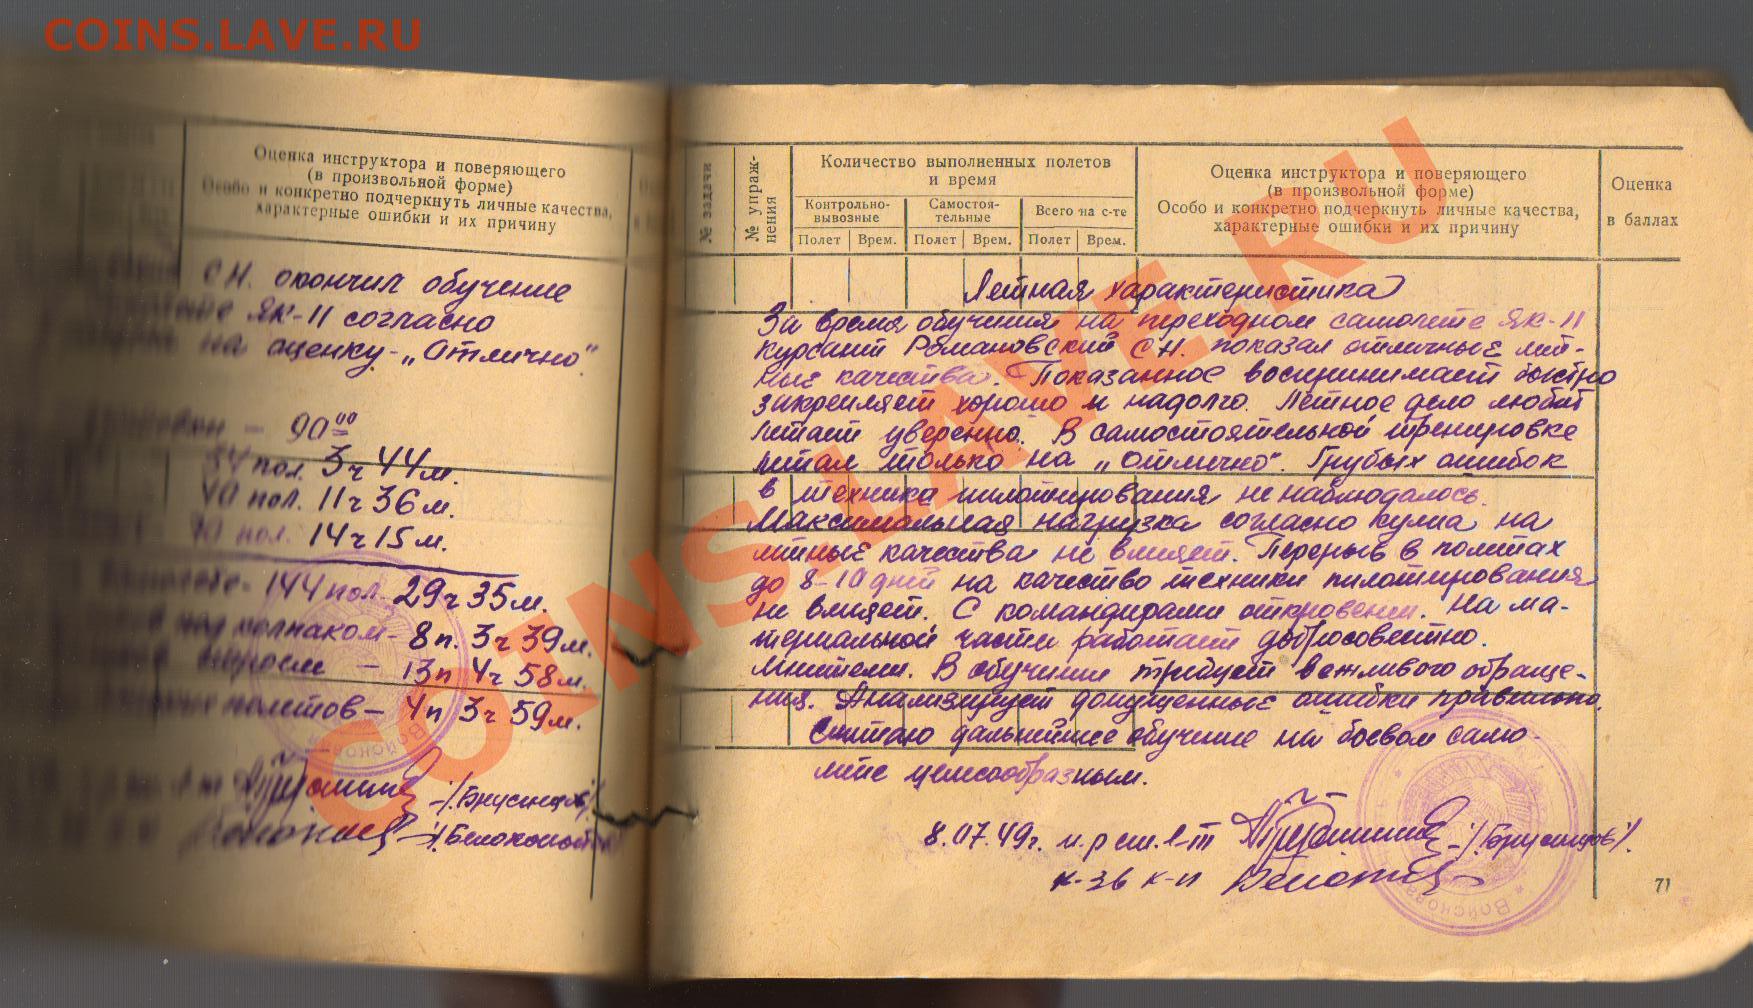 COINS.LAVE.RU
Оценка инструктора и поверяющего
(в произвольной форме)
Особо и конкретно подчеркнуть личные качества,
характерные ошибки и их причину
С.Н. окончил обучение
ЯК-11 согласно
на оценку - „Отлично“.
90 00
34 пол. 3ч 44м.
40 пол. 11ч 36м.
70 пол. 14ч 15м.
144 пол. 29ч 35м.
под колпаком - 8п. 3ч 39м.
- 13п 4ч 58м.
полетов - 4п 3ч 59м.
/Брусенцов/
№ задачи
№ упраж-
нения
Количество выполненных полетов
и время
Контрольно-
вывозные
Самостоя-
тельные
Всего на с-те
Полет Врем. Полет Врем. Полет Врем.
Оценка инструктора и поверяющего
(в произвольной форме)
Особо и конкретно подчеркнуть личные качества,
характерные ошибки и их причину
Оценка
в баллах
Летная характеристика
За время обучения на переходном самолете ЯК-11
курсант Романовский С.Н. показал отличные лет-
ные качества. Показанное воспринимает быстро
закрепляет хорошо и надолго. Летное дело любит
летает уверенно. В самостоятельной тренировке
летал только на „отлично“. Грубых ошибок
в техника пилотирования не наблюдалось.
Максимальная нагрузка согласно кулпа на
летные качества не влияет. Перерыв в полетах
до 8-10 дней на качество техники пилотирования
не влияет. С командирами откровенен. На ма-
териальной части работает добросовестно.
В обучении требует вежливого обраще-
ния. Анализирует допущенные ошибки правильно.
Считаю дальнейшее обучение на боевом само-
лете целесообразным.
8.07.49г. и.р ст. л-т /Брусенцов/.
к-р зв к-н
71
COINS.LAVE.RU